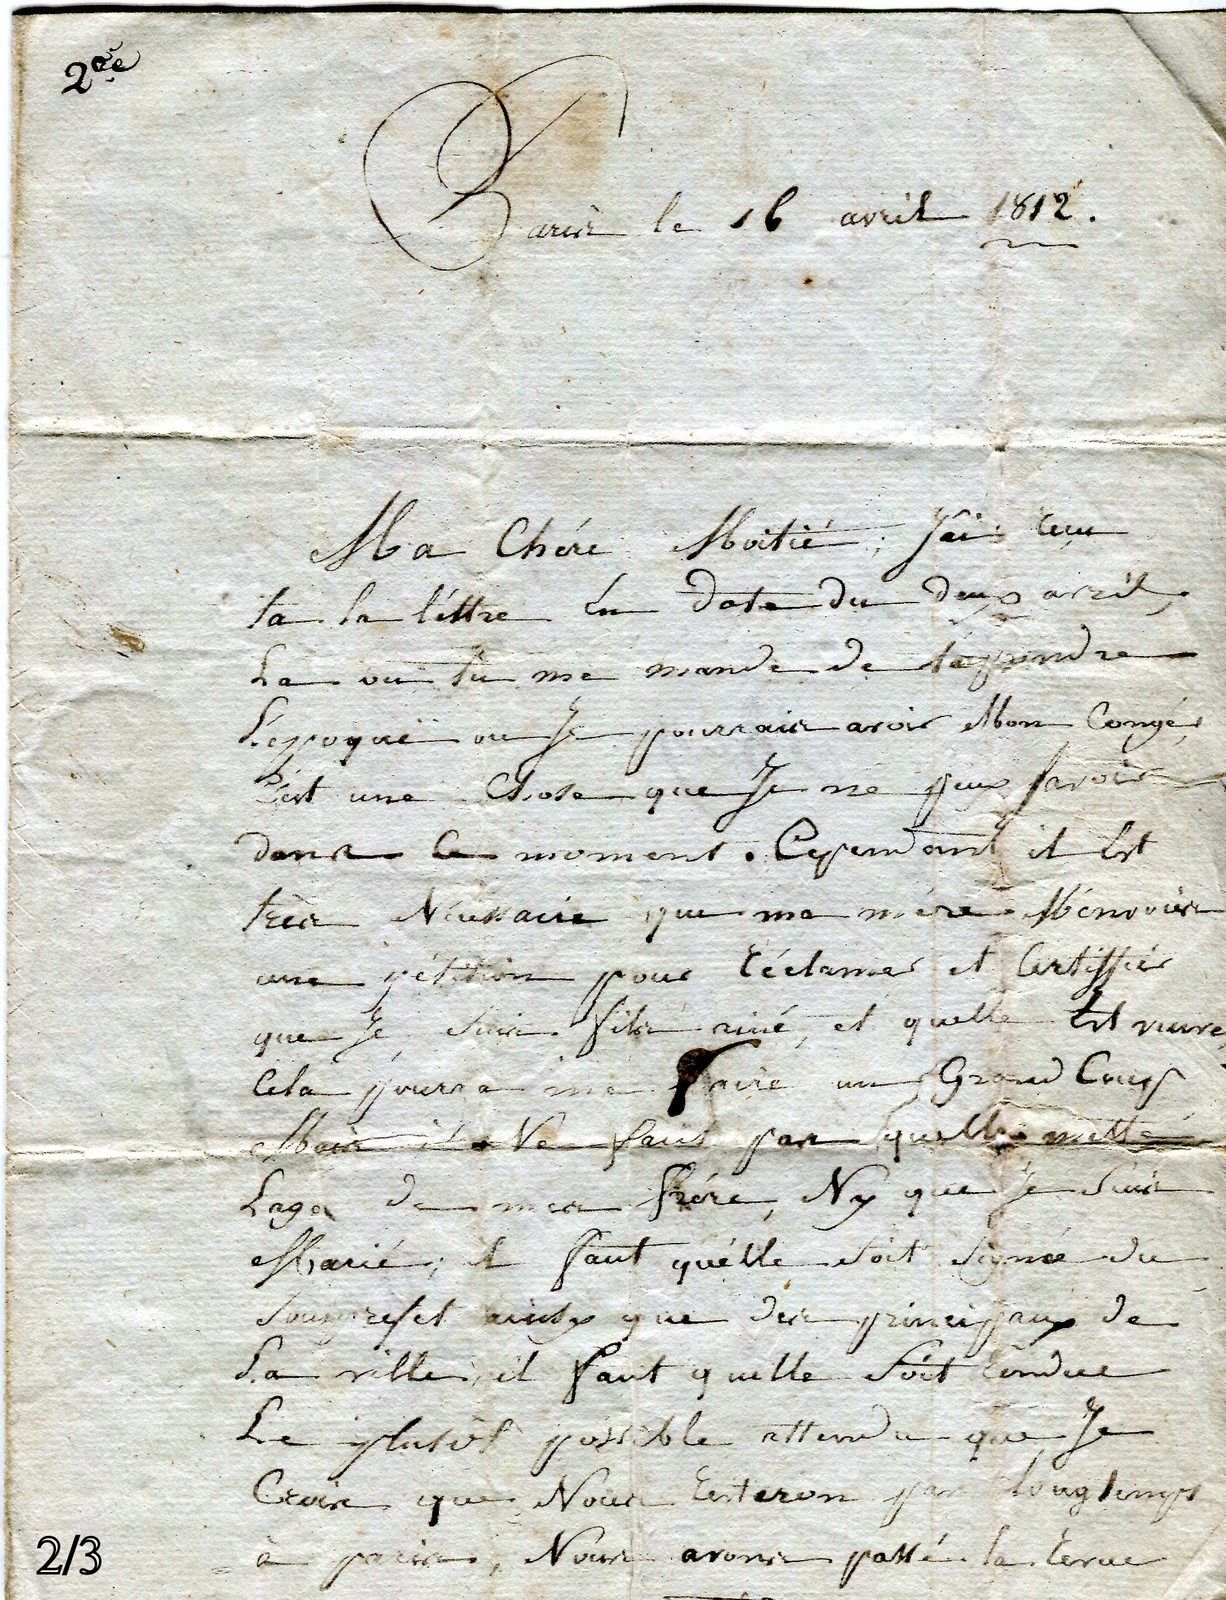 2ee
Paris le 16 avril 1812.
Ma Chére Moitié, J'ai recu
ta la léttre En date du deux avril,
La ou tu me mande de tapprendre
L'époque ou Je pourrais avoir Mon Congé,
C'est une Chose que Je ne peux savoir
dans Ce moment. Cependant il Est
très Nécessaire que ma mére M'énvoies
une pétition pour réclamer et Certiffier
que Je suis fils ainé, et quelle Est veuve,
Cela pourra me faire un Grand Coup
Mais il Ne faut pas quelle mette
Lage de mes frére, Ny que Je suis
Marié; il faut qu'élle soit signée du
Souprefet ainsy que des principaux de
La ville, il faut quelle soit rendue
Le plutôt possible attendu que Je
Crois que Nous resteron pas longtemps
à paris, Nous avons passé la revue
2/3